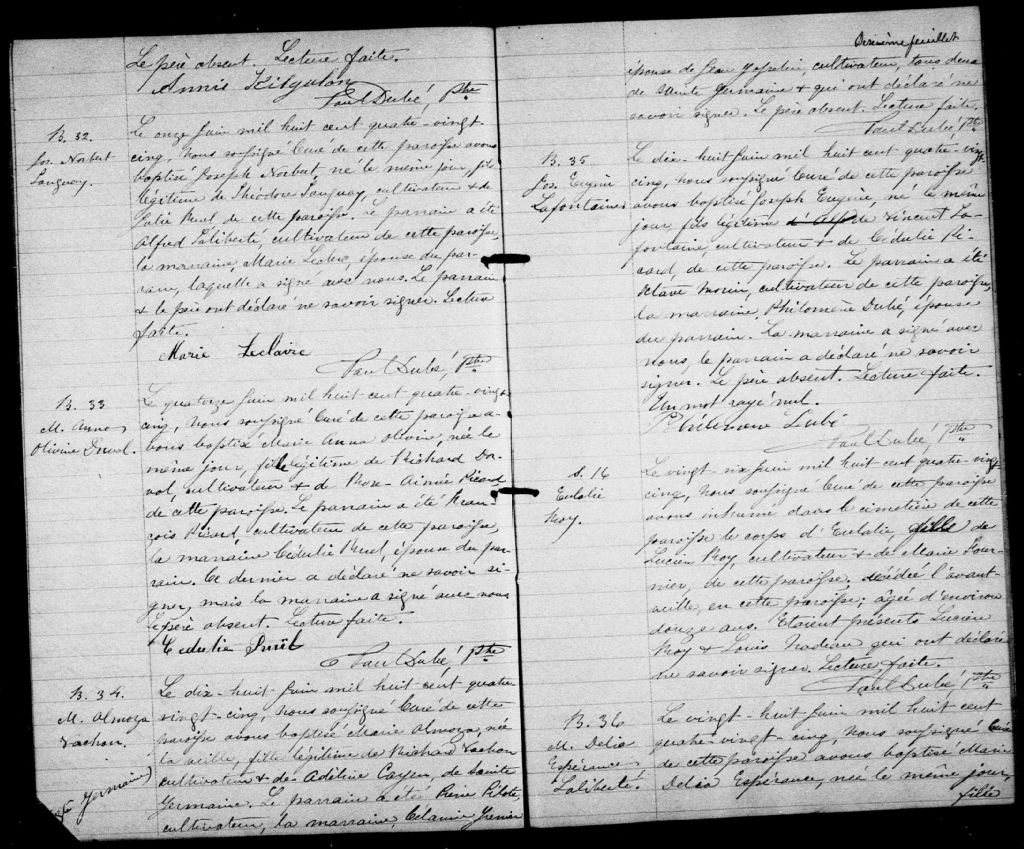 Le père absent. Lecture faite.
Annis Kilgalon
Paul Dubé, Ptre
B. 32.
Jos. Norbert
Tanguay.
Le onze Juin mil huit cent quatre-vingt
cinq, Nous soussigné Curé de cette paroisse avons
baptisé Joseph Norbert, né le même jour, fils
légitime de Théodore Tanguay, cultivateur & de
Julie Ruel de cette paroisse. Le parrain a été
Alfred Laliberté, cultivateur de cette paroisse,
la marraine, Marie Leclerc, épouse du par-
rain, laquelle a signé avec nous. Le parrain
& le père ont déclaré ne savoir signer. Lecture
faite.
Marie Leclaire
Paul Dubé, Ptre
B. 33
M. Anna
Olivine Duval.
Le quatorze Juin mil huit cent quatre-vingt
cinq, Nous soussigné Curé de cette paroisse a-
vons baptisé Marie Anna Olivine, née le
même jour, fille légitime de Richard Du-
val, cultivateur & de Rose-Aimée Ricard
de cette paroisse. Le parrain a été Fran-
çois Ricard, cultivateur de cette paroisse,
la marraine Cédulie Ruel, épouse du par-
rain. Ce dernier a déclaré ne savoir si-
gner, mais la marraine a signé avec nous
Le père absent. Lecture faite.
Cedulie Ruèl
Paul Dubé, Ptre
B. 34.
M. Almoza
Vachon.
(Ste Germaine)
Le dix-huit Juin mil huit cent quatre
vingt-cinq, Nous soussigné Curé de cette
paroisse avons baptisé Marie Almoza, née
la veille, fille légitime de Richard Vachon
cultivateur & de Adéline Cayen, de Sainte
Germaine. Le parrain a été Pierre Pilote,
cultivateur, la marraine, Célanire Grenier
feuillet
épouse de Jean Josselin, cultivateur, tous deux
de Sainte Germaine & qui ont déclaré ne
savoir signer. Le père absent. Lecture faite.
Paul Dubé, Ptre
B. 35
Jos. Eugène
Lafontaine
Le dix-huit Juin mil huit cent quatre-vingt
cinq, Nous soussigné Curé de cette paroisse
avons baptisé Joseph Eugène, né le même
jour, fils légitime d'Alf de Vincent La-
fontaine, cultivateur & de Cédulie Ri-
card, de cette paroisse. Le parrain a été
Octave Morin, cultivateur de cette paroisse,
la marraine Philomène Dubé, épouse
du parrain. La marraine a signé avec
nous, le parrain a déclaré ne savoir
signer. Le père absent. Lecture faite.
Un mot rayé nul.
Philomène Dubé
Paul Dubé, Ptre
S. 16
Eulalie
Roy.
Le vingt-six Juin mil huit cent quatre-vingt
cinq, Nous soussigné Curé de cette paroisse
avons inhumé dans le cimetière de cette
paroisse le corps d'Eulalie, fille de
Lucien Roy, cultivateur & de Marie Four-
nier, de cette paroisse, décédée l'avant-
veille, en cette paroisse; âgée d'environ
douze ans. Etaient présents Lucien
Roy & Louis Nadeau qui ont déclaré
ne savoir signer. Lecture faite.
Paul Dubé, Ptre
B. 36
M. Delia
Espérance
Laliberté.
Le vingt-huit Juin mil huit cent
quatre-vingt-cinq, Nous soussigné Curé
de cette paroisse avons baptisé Marie
Delia Espérance, née le même jour,
fille